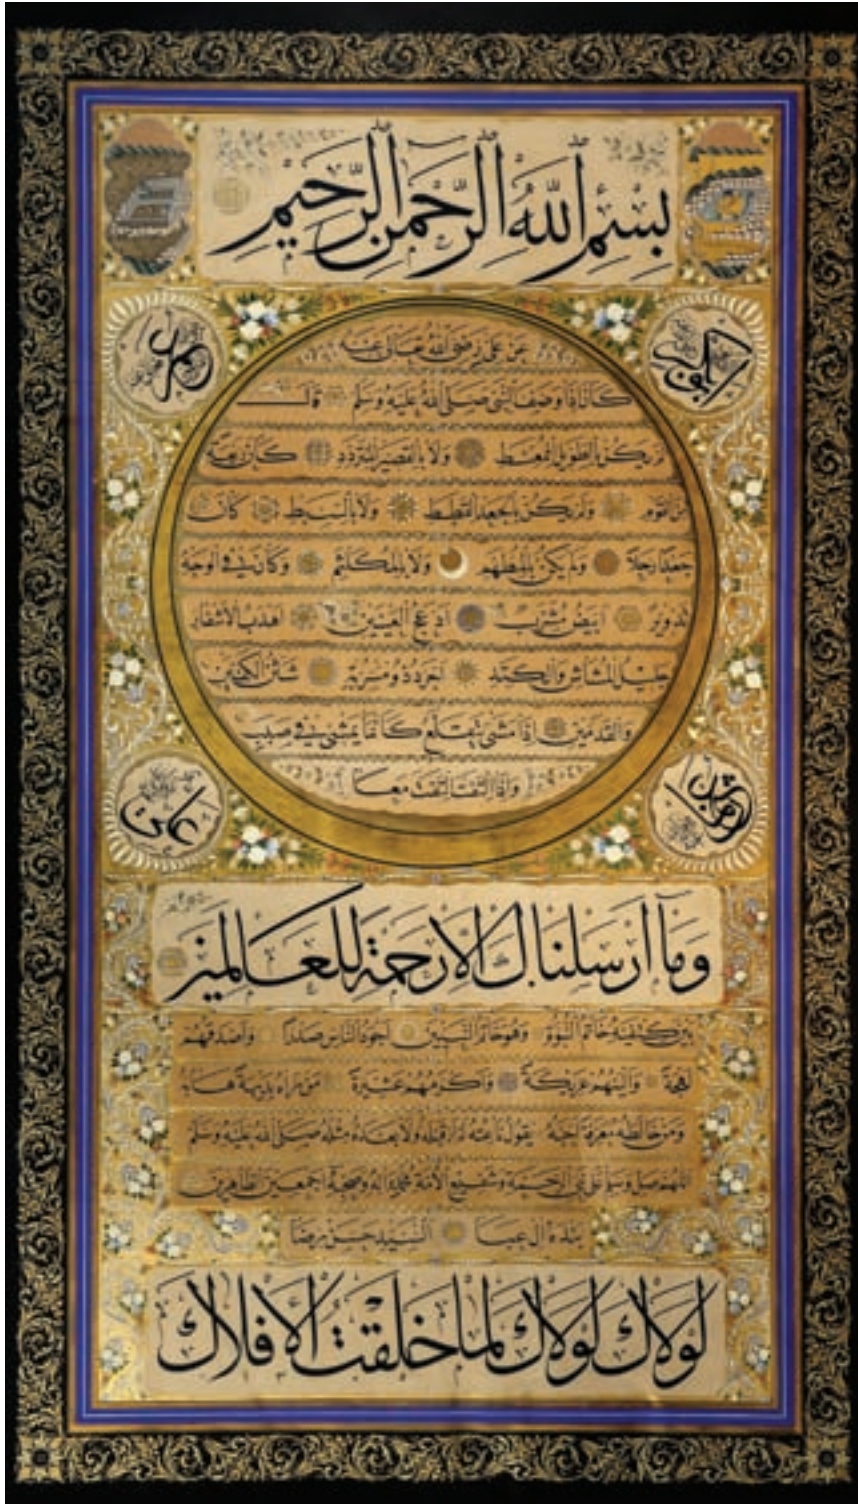 بِسْمِ اللَّهِ الرَّحْمَنِ الرَّحِيمِ
ابو بكر
عمر
عن على رضى الله تعالى عنه
كان اذا وصف النبى صلى الله عليه وسلم قال
لم يكن بالطويل الممغط ولا بالقصير المتردد كان ربعة
من القوم ولم يكن بالجعد القطط ولا بالسبط كان
جعدا رجلا ولم يكن بالمطهم ولا بالمكلثم وكان فى الوجه
تدوير ابيض مشرب ادعج العينين اهدب الاشفار
جليل المشاش والكتد اجرد ذو مسربة شثن الكفين
والقدمين اذا مشى يتقلع كانما يمشى فى صبب
واذا التفت التفت معا
عثمان
على
وما ارسلناك الا رحمة للعالمين
بين كتفيه خاتم النبوة وهو خاتم النبيين اجود الناس صدرا واصدقهم
لهجة والينهم عريكة واكرمهم عشيرة من راه بديهة هابه
ومن خالطه معرفة احبه يقول ناعته لم ار قبله ولا بعده مثله صلى الله عليه وسلم
اللهم صل وسلم على نبى الرحمة وشفيع الامة محمد واله وصحبه اجمعين الطاهرين
بنده ال عبا السيد حسن رضا
لولاك لولاك لما خلقت الافلاك